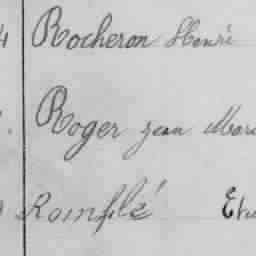 4 Rocheron Henri
Roger jean Mari
Romflé Etie